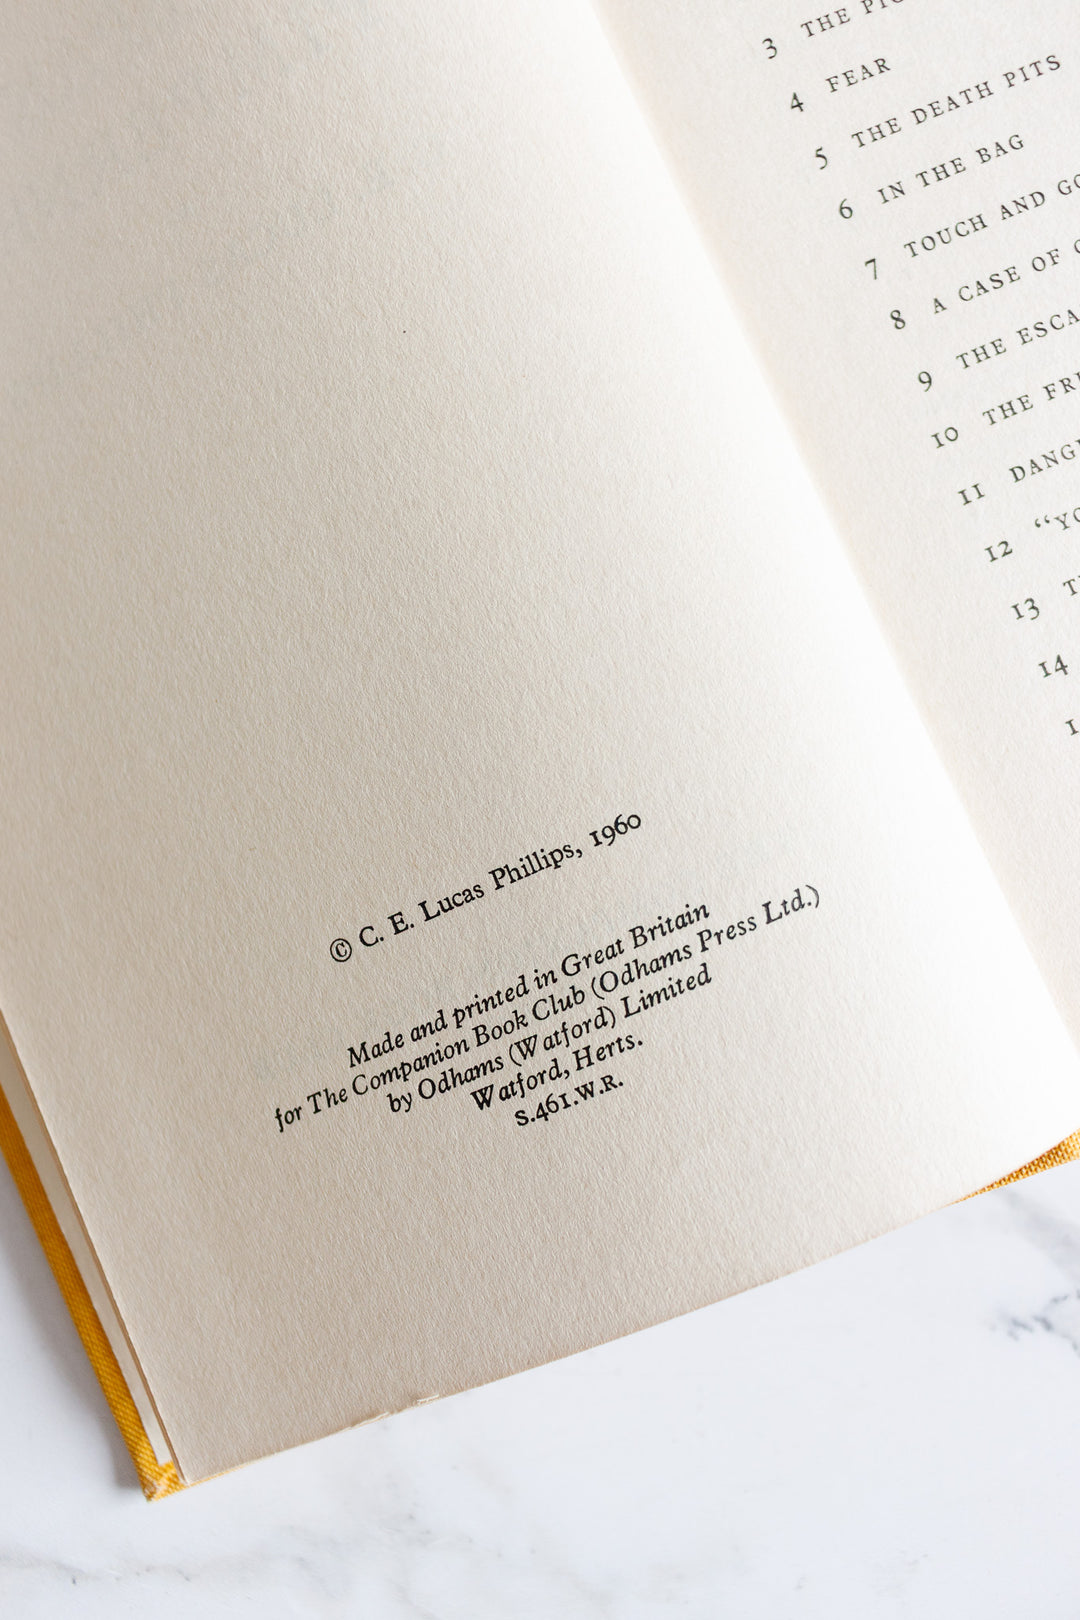 © C. E. Lucas Phillips, 1960
Made and printed in Great Britain
for The Companion Book Club (Odhams Press Ltd.)
by Odhams (Watford) Limited
Watford, Herts.
S.461.W.R.
3 THE
4 FEAR
5 THE DEATH PITS
6 IN THE BAG
7 TOUCH AND GO
8 A CASE OF
9 THE
10 THE
11
12
13
14